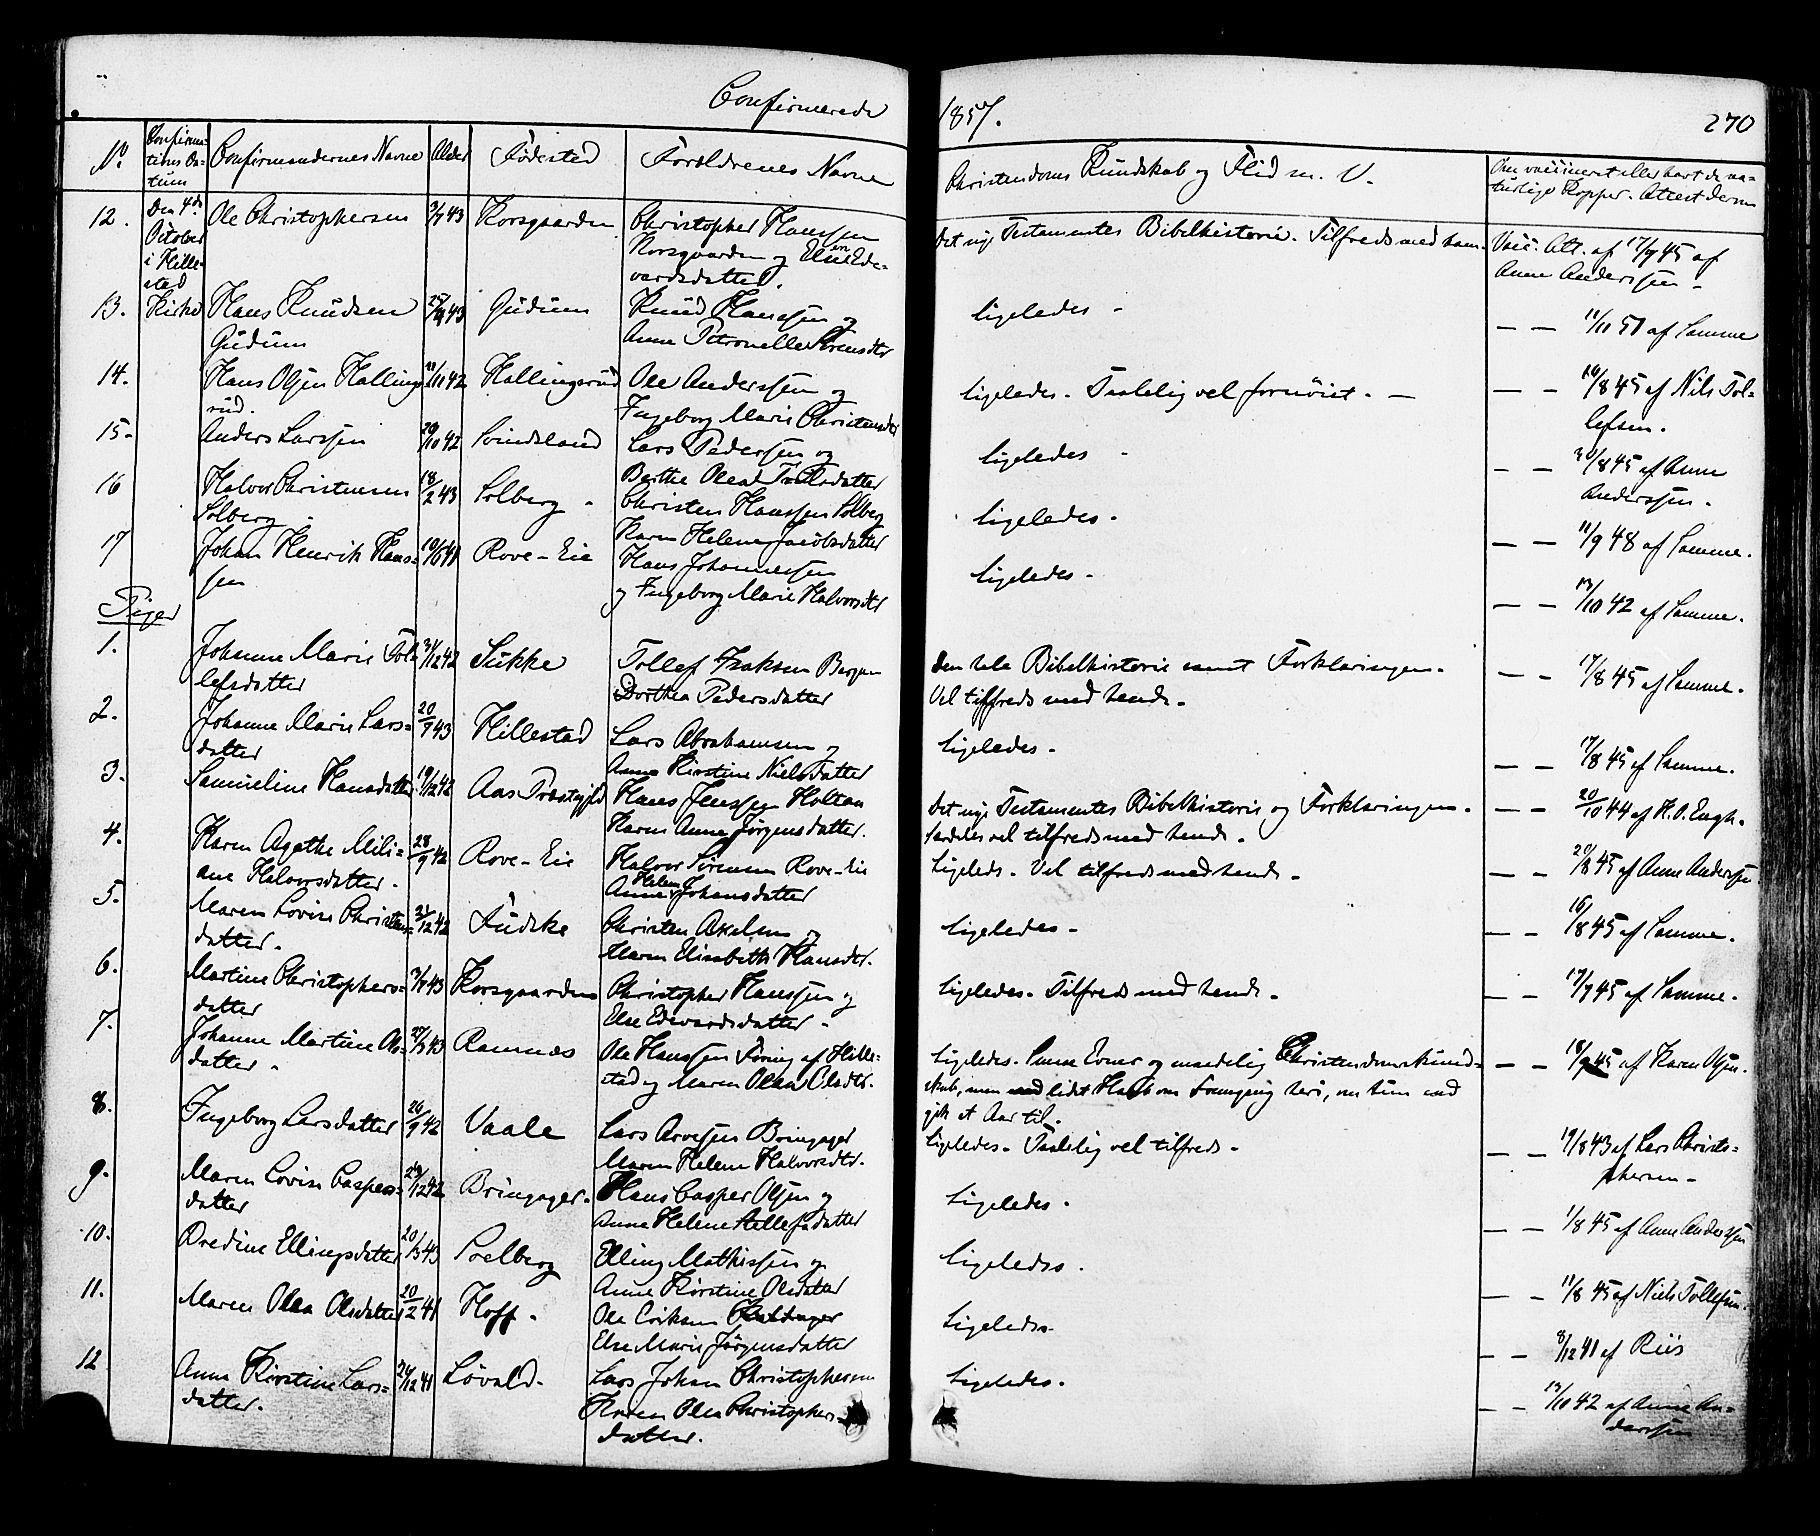 Confirmerede
1857.
270
No
Confirma-
tions Da-
tum
Confirmandernes Navne
Alder
Fødested
Forældrenes Navne
Christendoms Kundskab og Flid m. V.
Om vaccineret eller havt de na-
turlige Kopper. Attest derom
12.
Den 4de
October
i Hille-
stad
Kirke
Ole Christophersen
3/7 43
Korsgaarden
Christopher Hanssen
Korsgaarden og Else Ed-
vardsdatter.
Det nye Testamentes Bibelhistorie. Tilfreds med ham.
Vacc. Att. af 17/9 45 af
Anne Anderssen -
13.
Hans Knudsen
Gudum
43
Gudum
Knud Hanssen og
Anne Petronelle Sørensdtr
ligeledes -
— — 11/11 51 af Samme
14.
Hans Olsen Halling-
rud.
42
Hallingsrud
Ole Anderssen og
Ingeborg Marie Christensdtr
ligeledes. Taalelig vel fornøiet. —
— — 10/8 45 af Nils Tol-
lefsen.
15.
Anders Larssen
20/10 42
Svindsland
Lars Pedersen og
Berthe Olea datter
ligeledes -
— — 30/8 45 af Anne
Anderssen.
16
Halvor Christensen
Solberg -
18/2 43
Solberg -
Christen Hanssen Solberg
Karen Helene Jacobsdatter
ligeledes -
— — 11/9 48 af Samme.
17
Johan Henrik Hans-
sen
41
Rove-Eie
Hans Johannessen
og Ingeborg Marie Halvorsdtr
ligeledes -
— — 13/10 42 af Samme.
Piger
1.
Johanne Marie Tol-
lefsdatter
31/12 42
Sukke
Tollef Isaksen Bergan
Dorthea Pedersdatter
Den hele Bibelhistorie samt Forklaringen.
Vel tilfreds med hende.
— — 17/8 45 af Samme.
2.
Johanne Marie Lars-
datter
20/9 43
Hillestad
Lars Abrahamsen og
Anne Kirstine Nielsdatter
ligeledes -
— — 17/8 45 af Samme.
3.
Samueline Hansdatter
19/12 42
Aas Præstegjeld
Hans Jenssen Holtan
Karen Anne Jørgensdatter.
Det nye Testamentes Bibelhistorie og Forklaringen.
Særdeles vel tilfreds med hende.
— — 20/10 44 af H. O. Engh.
4.
Karen Agathe Mili-
ane Halvorsdatter -
28/9 42
Rove-Eie
Halvor Sørensen Rove-Eie
Anne Helene Johansdatter
Ligeleds. Vel tilfreds med hende.
— — 29/8 45 af Anne Anderssen
5.
Maren Lovise Christens-
datter.
21/12 42
Fudske
Christen Axelsen og
Maren Elisabeth Hansdtr.
ligeledes -
— — 10/8 45 af Samme.
6.
Martine Christophers-
datter
3/7 43
Korsgaarden
Christopher Hanssen og
Else Edvardsdatter -
ligeledes. Tilfreds med hende -
— — 17/9 45 af Samme.
7.
Johanne Martine Ols-
datter -
43
Ramnæs
Ole Hanssen Føring af Hille-
stad og Maren Olea Olsdtr.
Ligeledes. Evner og maadelig Christendomskund-
skab, men lidet Haab om Fremgang heri, om hun end
gik et Aar til.
— — 18/9 45 af Karen Olsen.
8.
Ingeborg Larsdatter
26/9 42
Vaale
Lars Arvesen Bringager
Maren Helene Halvorsdtr.
ligeledes. Taalelig vel tilfreds -
— — 19/8 43 af Lars Christo-
phersen -
9.
Maren Lovise Caspers-
datter
26/12 42
Bringager -
Hans Casper Olsen og
Anne Helene datter
ligeledes.
— — 1/8 45 af Anne Anderssen
10.
Bredine Ellingsdatter
20/3 43
Soelberg
Elling Mathissen og
Anne Kirstine Olsdatter
ligeledes.
— — 11/8 45 af Niels Tollefsen.
11.
Maren Olea Olsdatter
20/12 41
Hoff -
Ole Eriksen
Else Marie Jørgensdatter
ligeledes
— — 8/12 41 af Riis
12
Anne Kirstine Lars-
datter.
26/12 41
Løvald -
Lars Johan Christophersen
Karen Olea Christophers-
datter.
ligeledes.
— — 13/10 42 af Anne An-
derssen